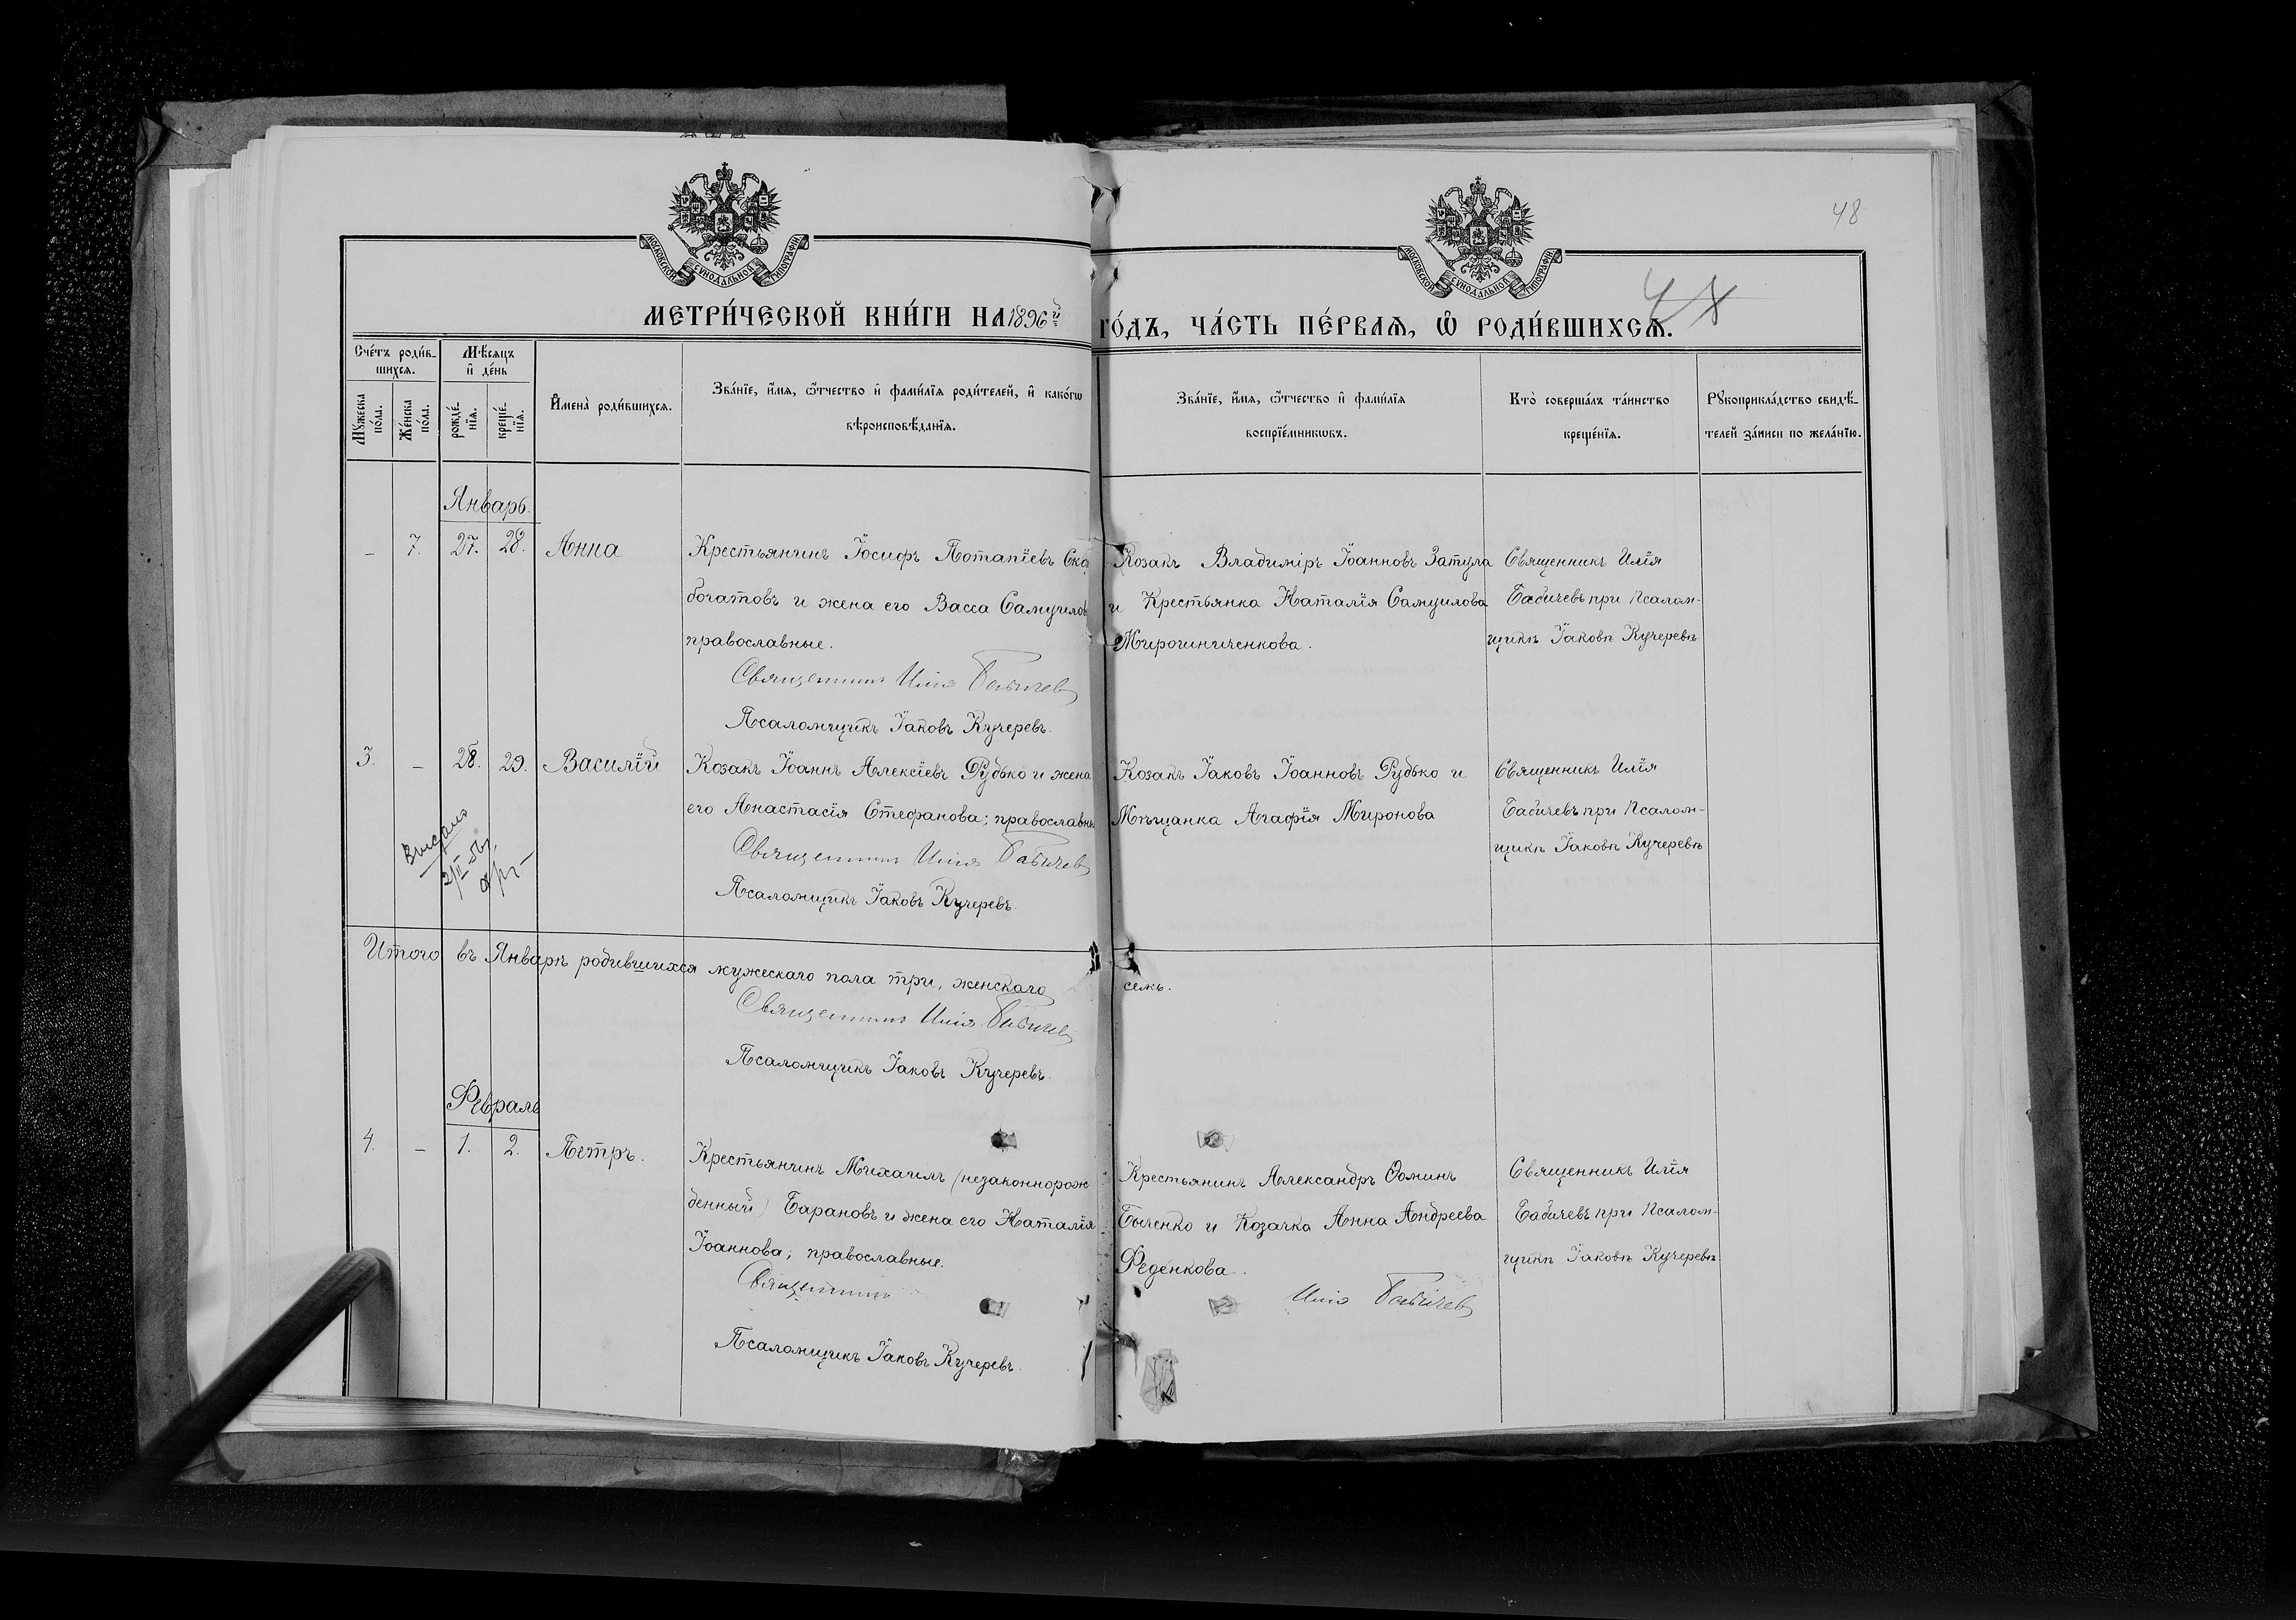 48
МОСКОВСКОЙ СѴНОДАЛЬНОЙ ТИПОГРАФІИ
МОСКОВСКОЙ СѴНОДАЛЬНОЙ ТИПОГРАФІИ
48
МЕТРИ́ЧЕСКОЙ КНИ́ГИ НА 1896й
ГО́ДЪ, ЧА́СТЬ ПЕ́РВАѦ, Ѡ҆ РОДИ́ВШИХСѦ.
Сче́тъ роди́в-
шихсѧ.
Мѣ́сѧцъ
и҆ де́нь
Мꙋ́жеска
по́ла.
Же́нска
по́ла.
рожде́-
нїѧ.
креще́-
нїѧ.
И҆мена̀ роди́вшихсѧ.
Зва́нїе, и҆́мѧ, ѻ҆́тчество и҆ фами́лїѧ роди́телей, и҆ како́гѡ
вѣроисповѣ́данїѧ.
Зва́нїе, и҆́мѧ, ѻ҆́тчество и҆ фами́лїѧ
воспрїе́мникѡвъ.
Кто̀ соверша́лъ та́инство
креще́нїѧ.
Рꙋкоприкла́дство свидѣ́-
телей за́писи по жела́нїю.
Январь.
– 7. 27. 28. Анна
Крестьянинъ Іосифъ Потапіевъ Ско
богатовъ и жена его Васса Самуилов
православные.
Священникъ Илія Бабичев
Псаломщикъ Іаковъ Кучеревъ.
Козакъ Владиміръ Іоанновъ Затула
и Крестьянка Наталія Самуилова
Мирошниченкова.
Священникъ Илія
Бабичевъ при Псалом-
щикѣ Іаковѣ Кучеревѣ
3. – 28. 29. Василій
Козакъ Іоаннъ Алексіевъ Рудько и жена
его Анастасія Стефанова; православны
Священникъ Илія Бабичев
Псаломщикъ Іаковъ Кучеревъ.
Выдано
Козакъ Іаковъ Іоанновъ Рудько и
Мѣщанка Агафія Миронова
Священникъ Илія
Бабичевъ при Псалом-
щикѣ Іаковѣ Кучеревѣ
Итого въ Январѣ родившихся мужескаго пола три, женскаго семь.
Священникъ Илія Бабичев
Псаломщикъ Іаковъ Кучеревъ.
Февраль
4. – 1. 2. Петръ.
Крестьянинъ Михаилъ (незаконнорож
денный) Барановъ и жена его Наталія
Іоаннова; православные.
Священникъ Илія Бабичев
Псаломщикъ Іаковъ Кучеревъ.
Крестьянинъ Александръ Ѳоминъ
Быченко и Козачка Анна Андреева
Феденкова.
Священникъ Илія
Бабичевъ при Псалом-
щикѣ Іаковѣ Кучеревѣ